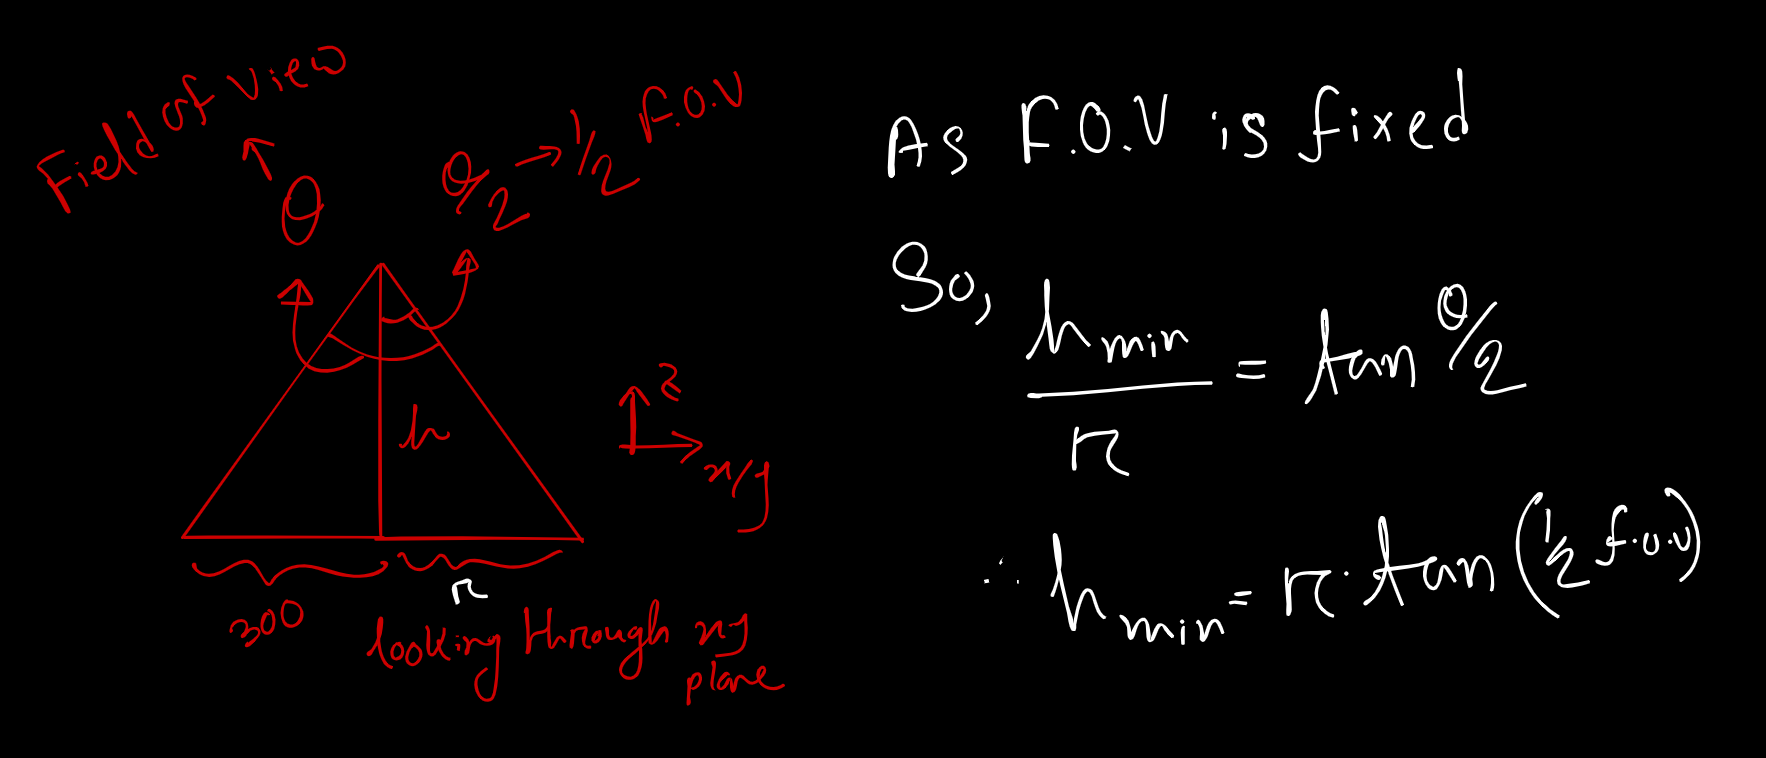 Field of View
θ
θ/2 → 1/2 F.O.V
h
z
x/y
300
r
looking through xy
plane
As F.O.V is fixed
So, h min / r = tan θ/2
∴ h min = r · tan (1/2 f.o.v)